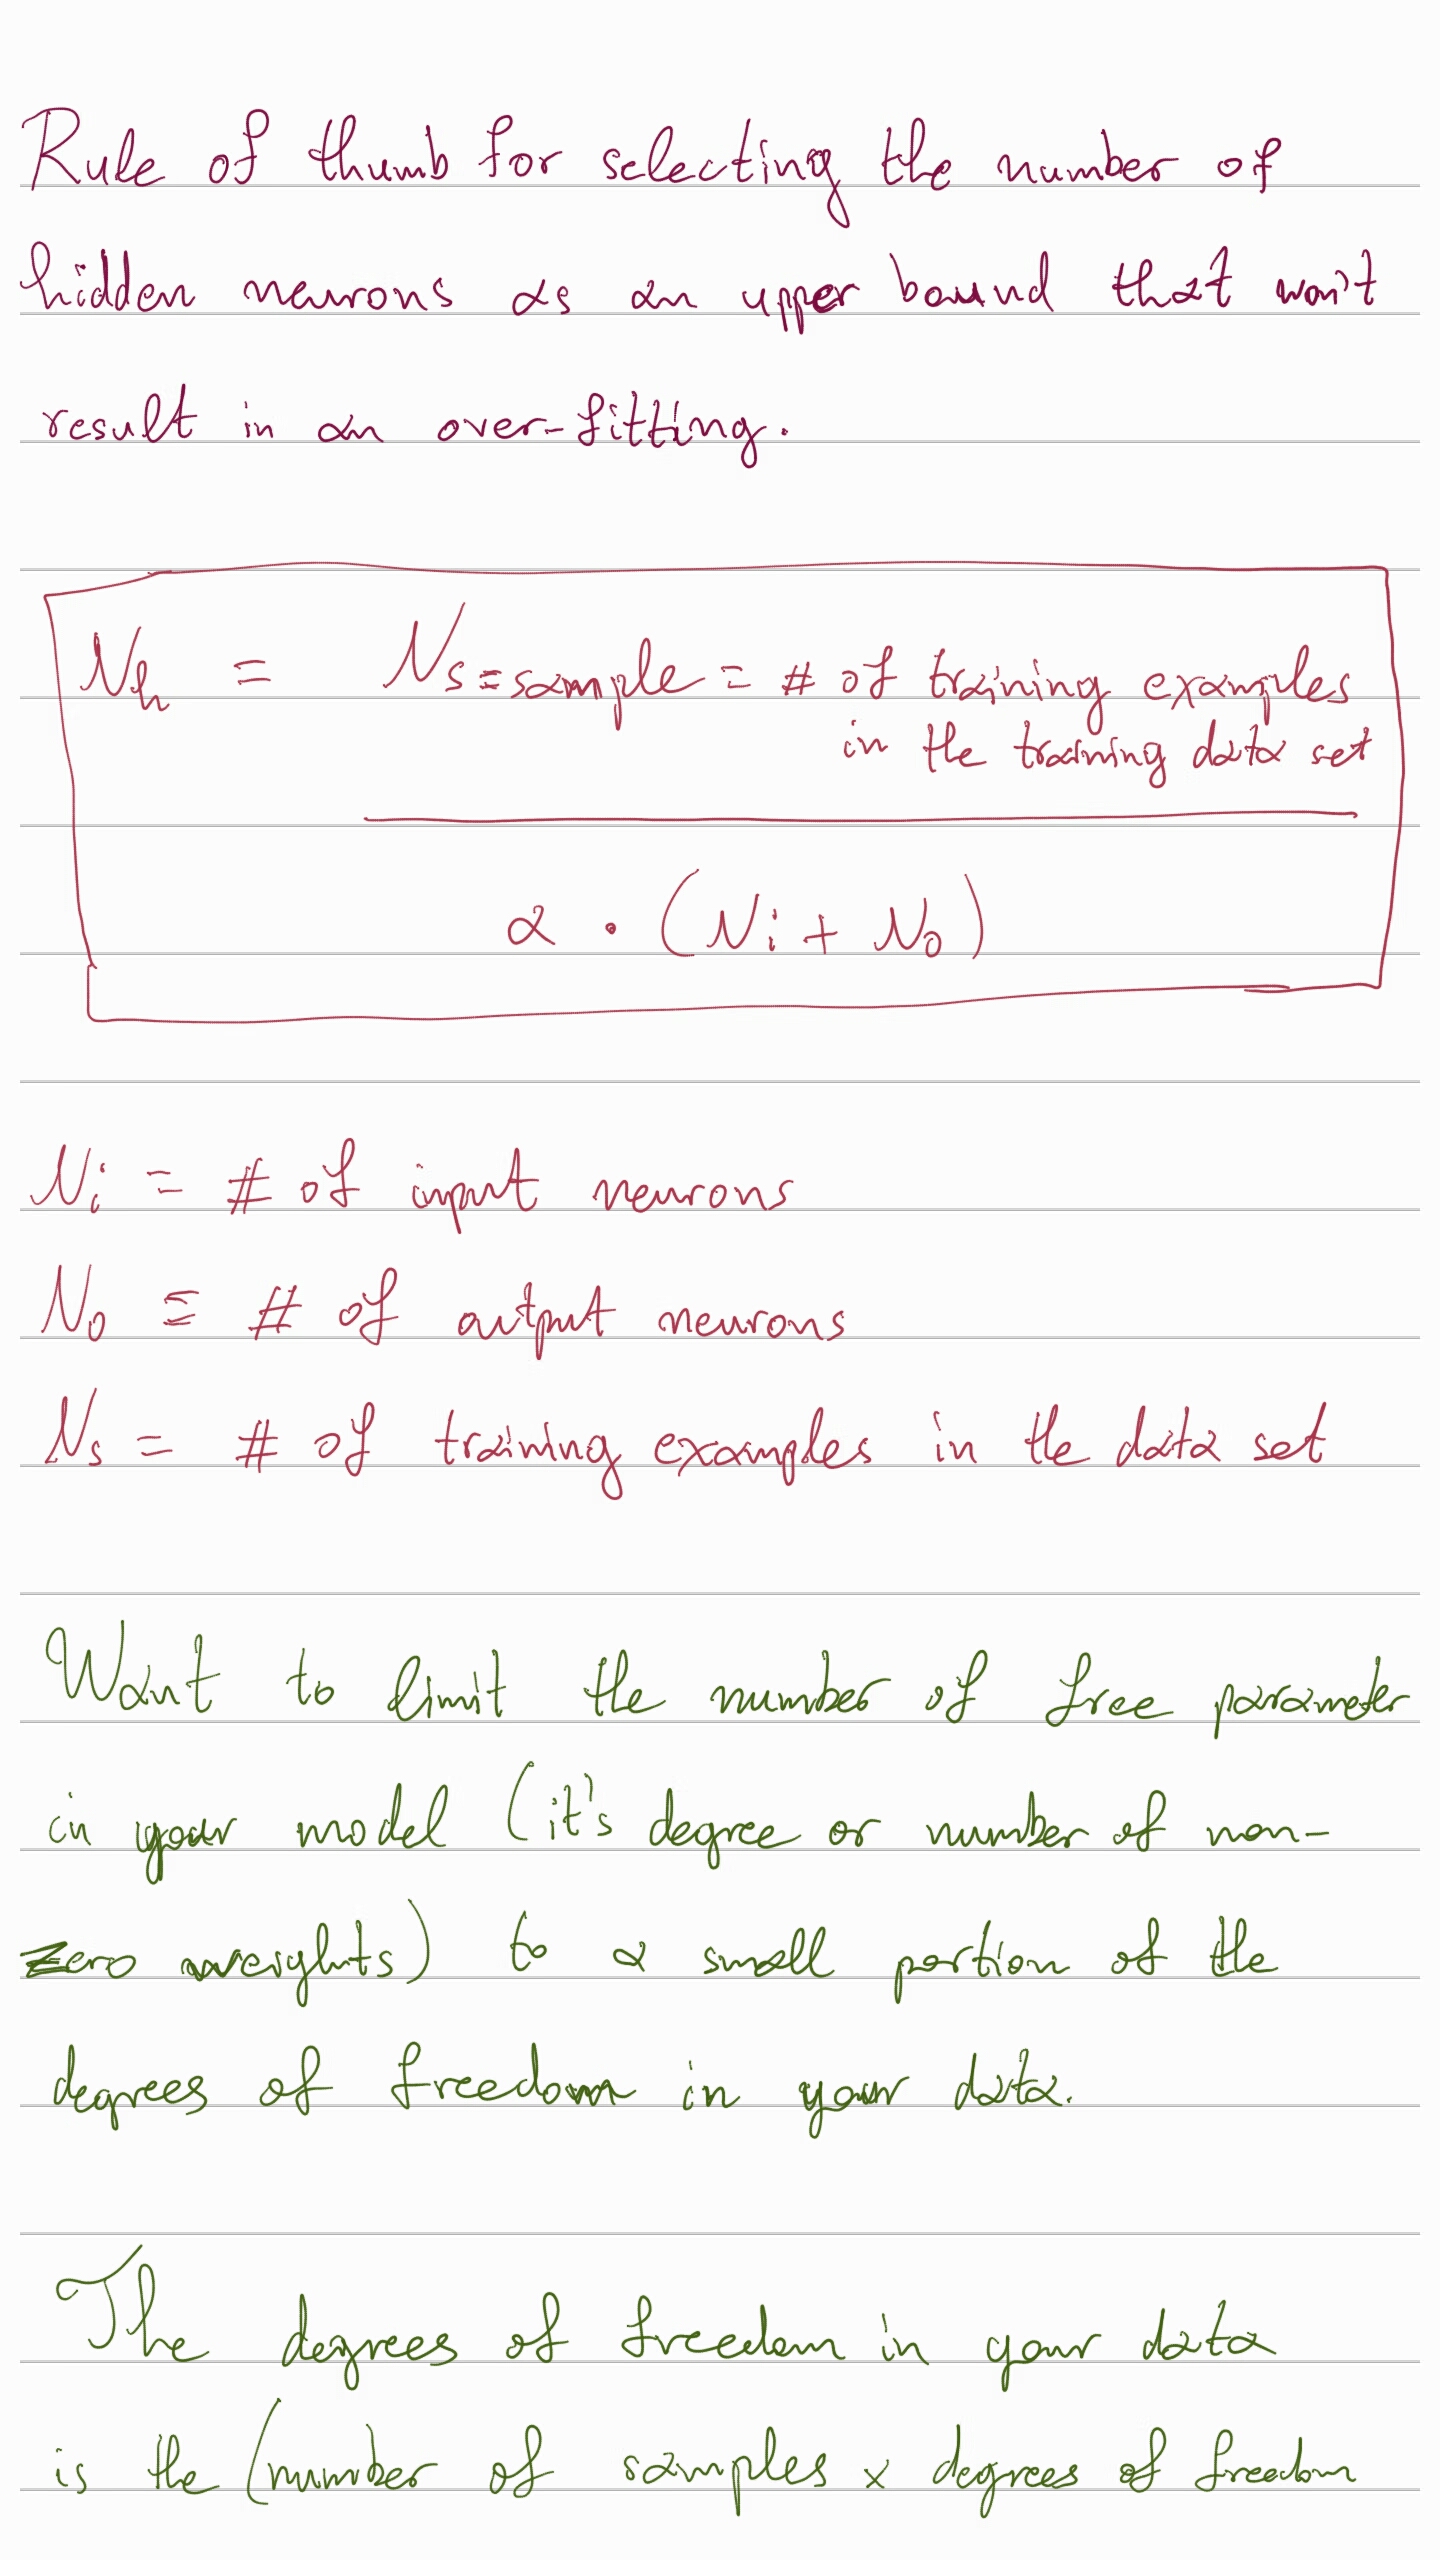 Rule of thumb for selecting the number of
hidden neurons as an upper bound that won't
result in an over-fitting.
Nh = Ns = sample = # of training examples
in the training data set
α · (Ni + No)
Ni = # of input neurons
No ≡ # of output neurons
Ns = # of training examples in the data set
Want to limit the number of free parameter
in your model (it's degree or number of non-
zero weights) to a small portion of the
degrees of freedom in your data.
The degrees of freedom in your data
is the (number of samples x degrees of freedom